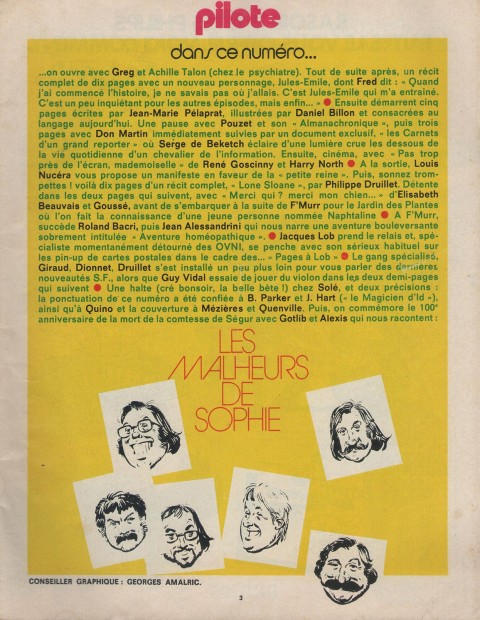 pilote
dans ce numéro...
...on ouvre avec Greg et Achille Talon (chez le psychiatre). Tout de suite après, un récit
complet de dix pages avec un nouveau personnage, Jules-Emile, dont Fred dit : « Quand
j'ai commencé l'histoire, je ne savais pas où j'allais. C'est Jules-Emile qui m'a entrainé.
C'est un peu inquiétant pour les autres épisodes, mais enfin... » ● Ensuite démarrent cinq
pages écrites par Jean-Marie Pélaprat, illustrées par Daniel Billon et consacrées au
langage aujourd'hui. Une pause avec Pouzet et son « Almanachronique », puis trois
pages avec Don Martin immédiatement suivies par un document exclusif, « les Carnets
d'un grand reporter » où Serge de Beketch éclaire d'une lumière crue les dessous de
la vie quotidienne d'un chevalier de l'information. Ensuite, cinéma, avec « Pas trop
près de l'écran, mademoiselle » de René Goscinny et Harry North ● A la sortie, Louis
Nucéra vous propose un manifeste en faveur de la « petite reine ». Puis, sonnez trom-
pettes ! voilà dix pages d'un récit complet, « Lone Sloane », par Philippe Druillet. Détente
dans les deux pages qui suivent, avec « Merci qui ? merci mon chien... » d'Elisabeth
Beauvais et Gousse, avant de s'embarquer à la suite de F'Murr pour le Jardin des Plantes
où l'on fait la connaissance d'une jeune personne nommée Naphtaline ● A F'Murr,
succède Roland Bacri, puis Jean Alessandrini qui nous narre une aventure bouleversante
sobrement intitulée « Aventure homéopathique ». ● Jacques Lob prend le relais et, spé-
cialiste momentanément détourné des OVNI, se penche avec son sérieux habituel sur
les pin-up de cartes postales dans le cadre des... « Pages à Lob » ● Le gang spécialisé,
Giraud, Dionnet, Druillet s'est installé un peu plus loin pour vous parler des dernières
nouveautés S.F., alors que Guy Vidal essaie de jouer du violon dans les deux demi-pages
qui suivent ● Une halte (cré bonsoir, la belle bête !) chez Solé, et deux précisions :
la ponctuation de ce numéro a été confiée à B. Parker et J. Hart (« le Magicien d'Id »),
ainsi qu'à Quino et la couverture à Mézières et Quenville. Puis, on commémore le 100e
anniversaire de la mort de la comtesse de Ségur avec Gotlib et Alexis qui nous racontent :
LES
MALHEURS
DE
SOPHIE
CONSEILLER GRAPHIQUE : GEORGES AMALRIC.
3